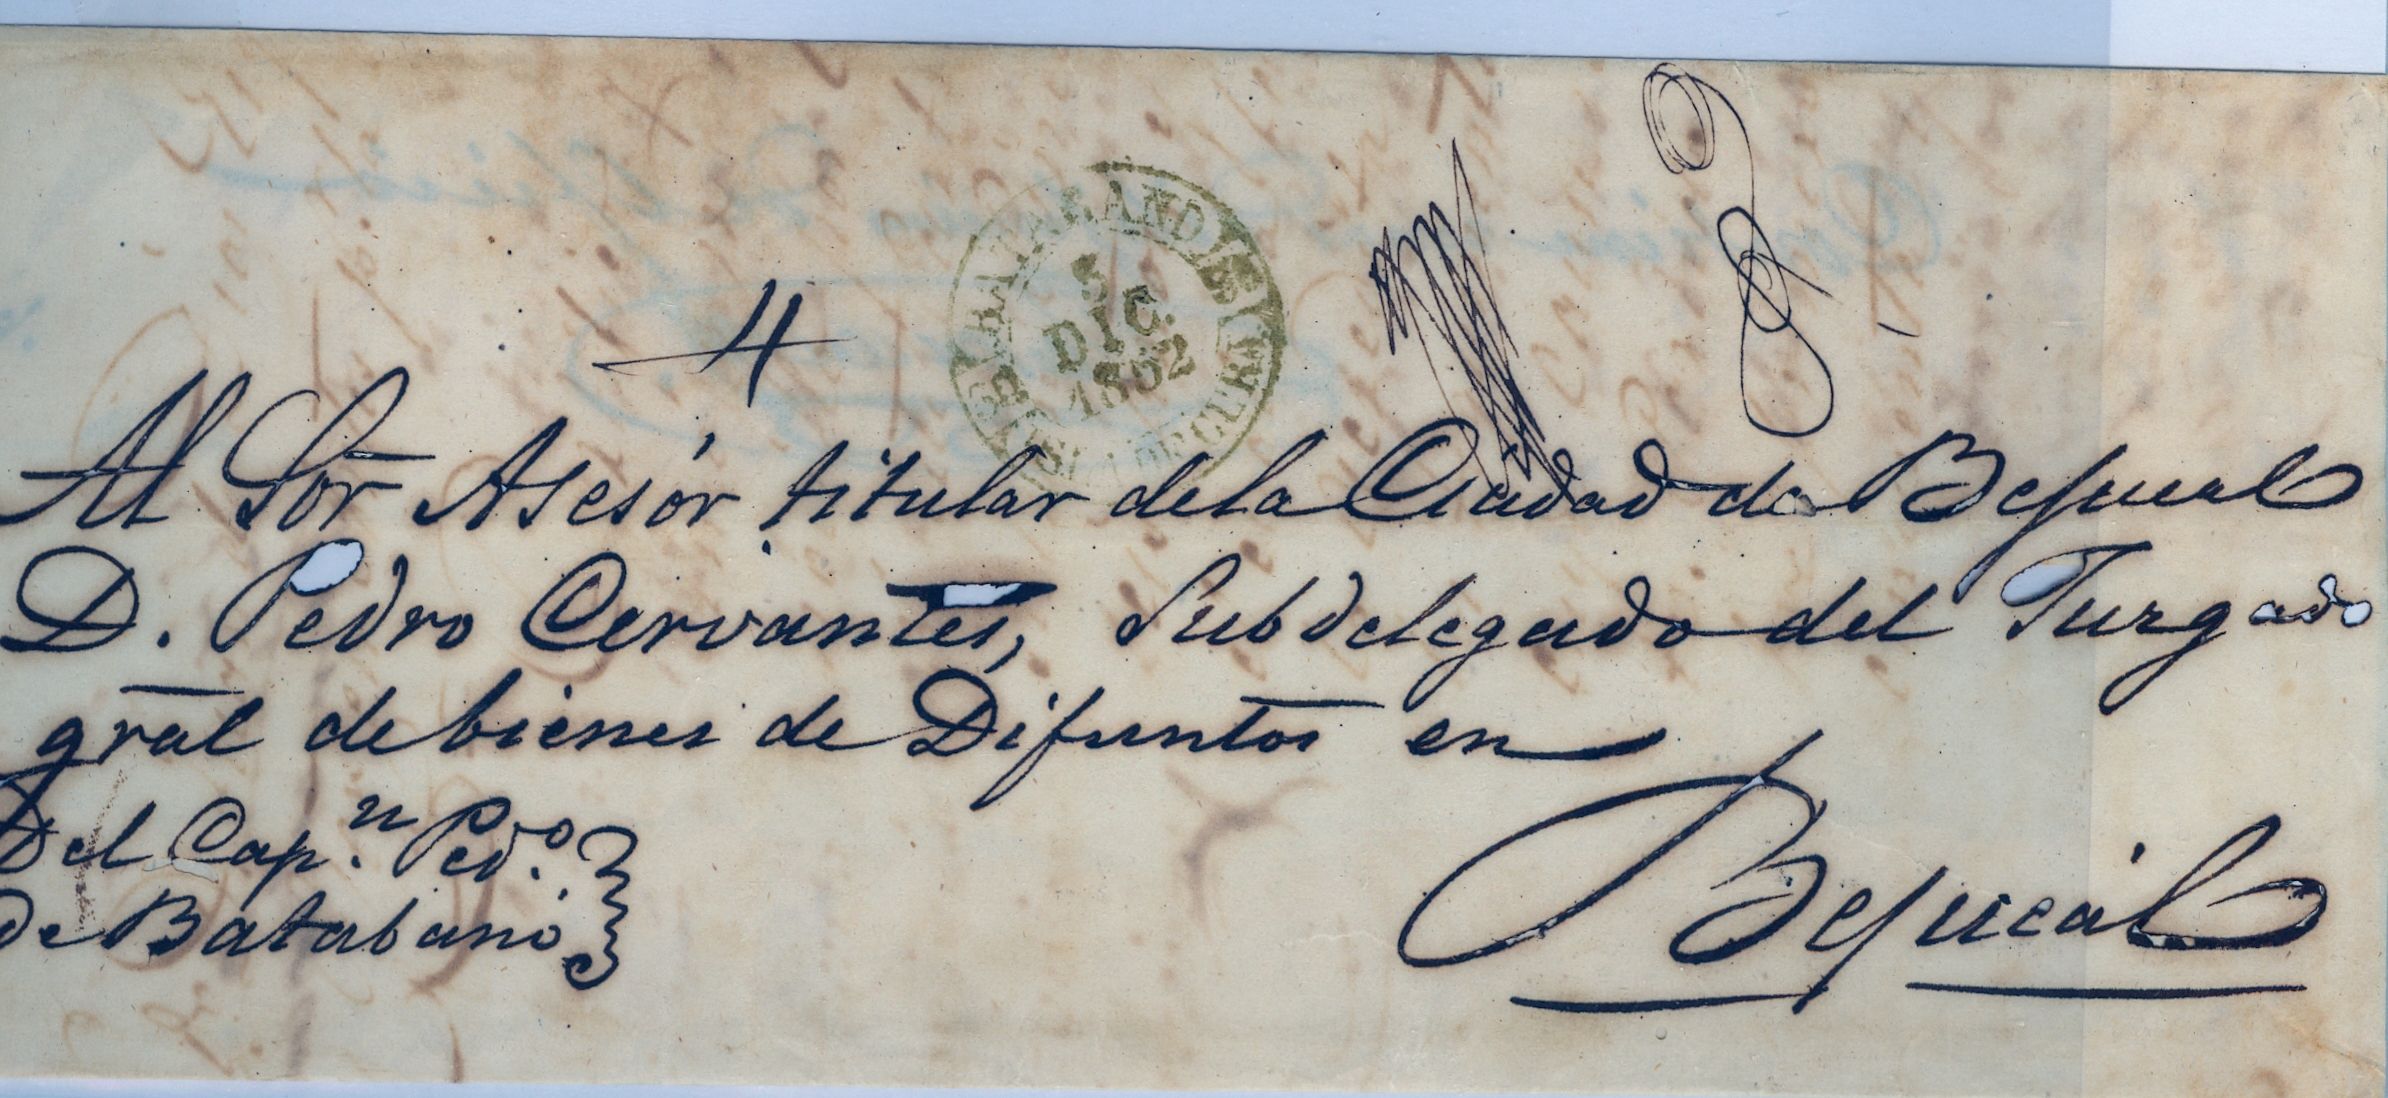 5
DIC.
1852
4
Al Sōr Asesór titular de la Ciudad de Bejucal
D. Pedro Cervantes, Subdelegado del Juzgado
grāl de bienes de Difuntos en
Bejucál
Del Cap.n Ped.o
de Batabanó